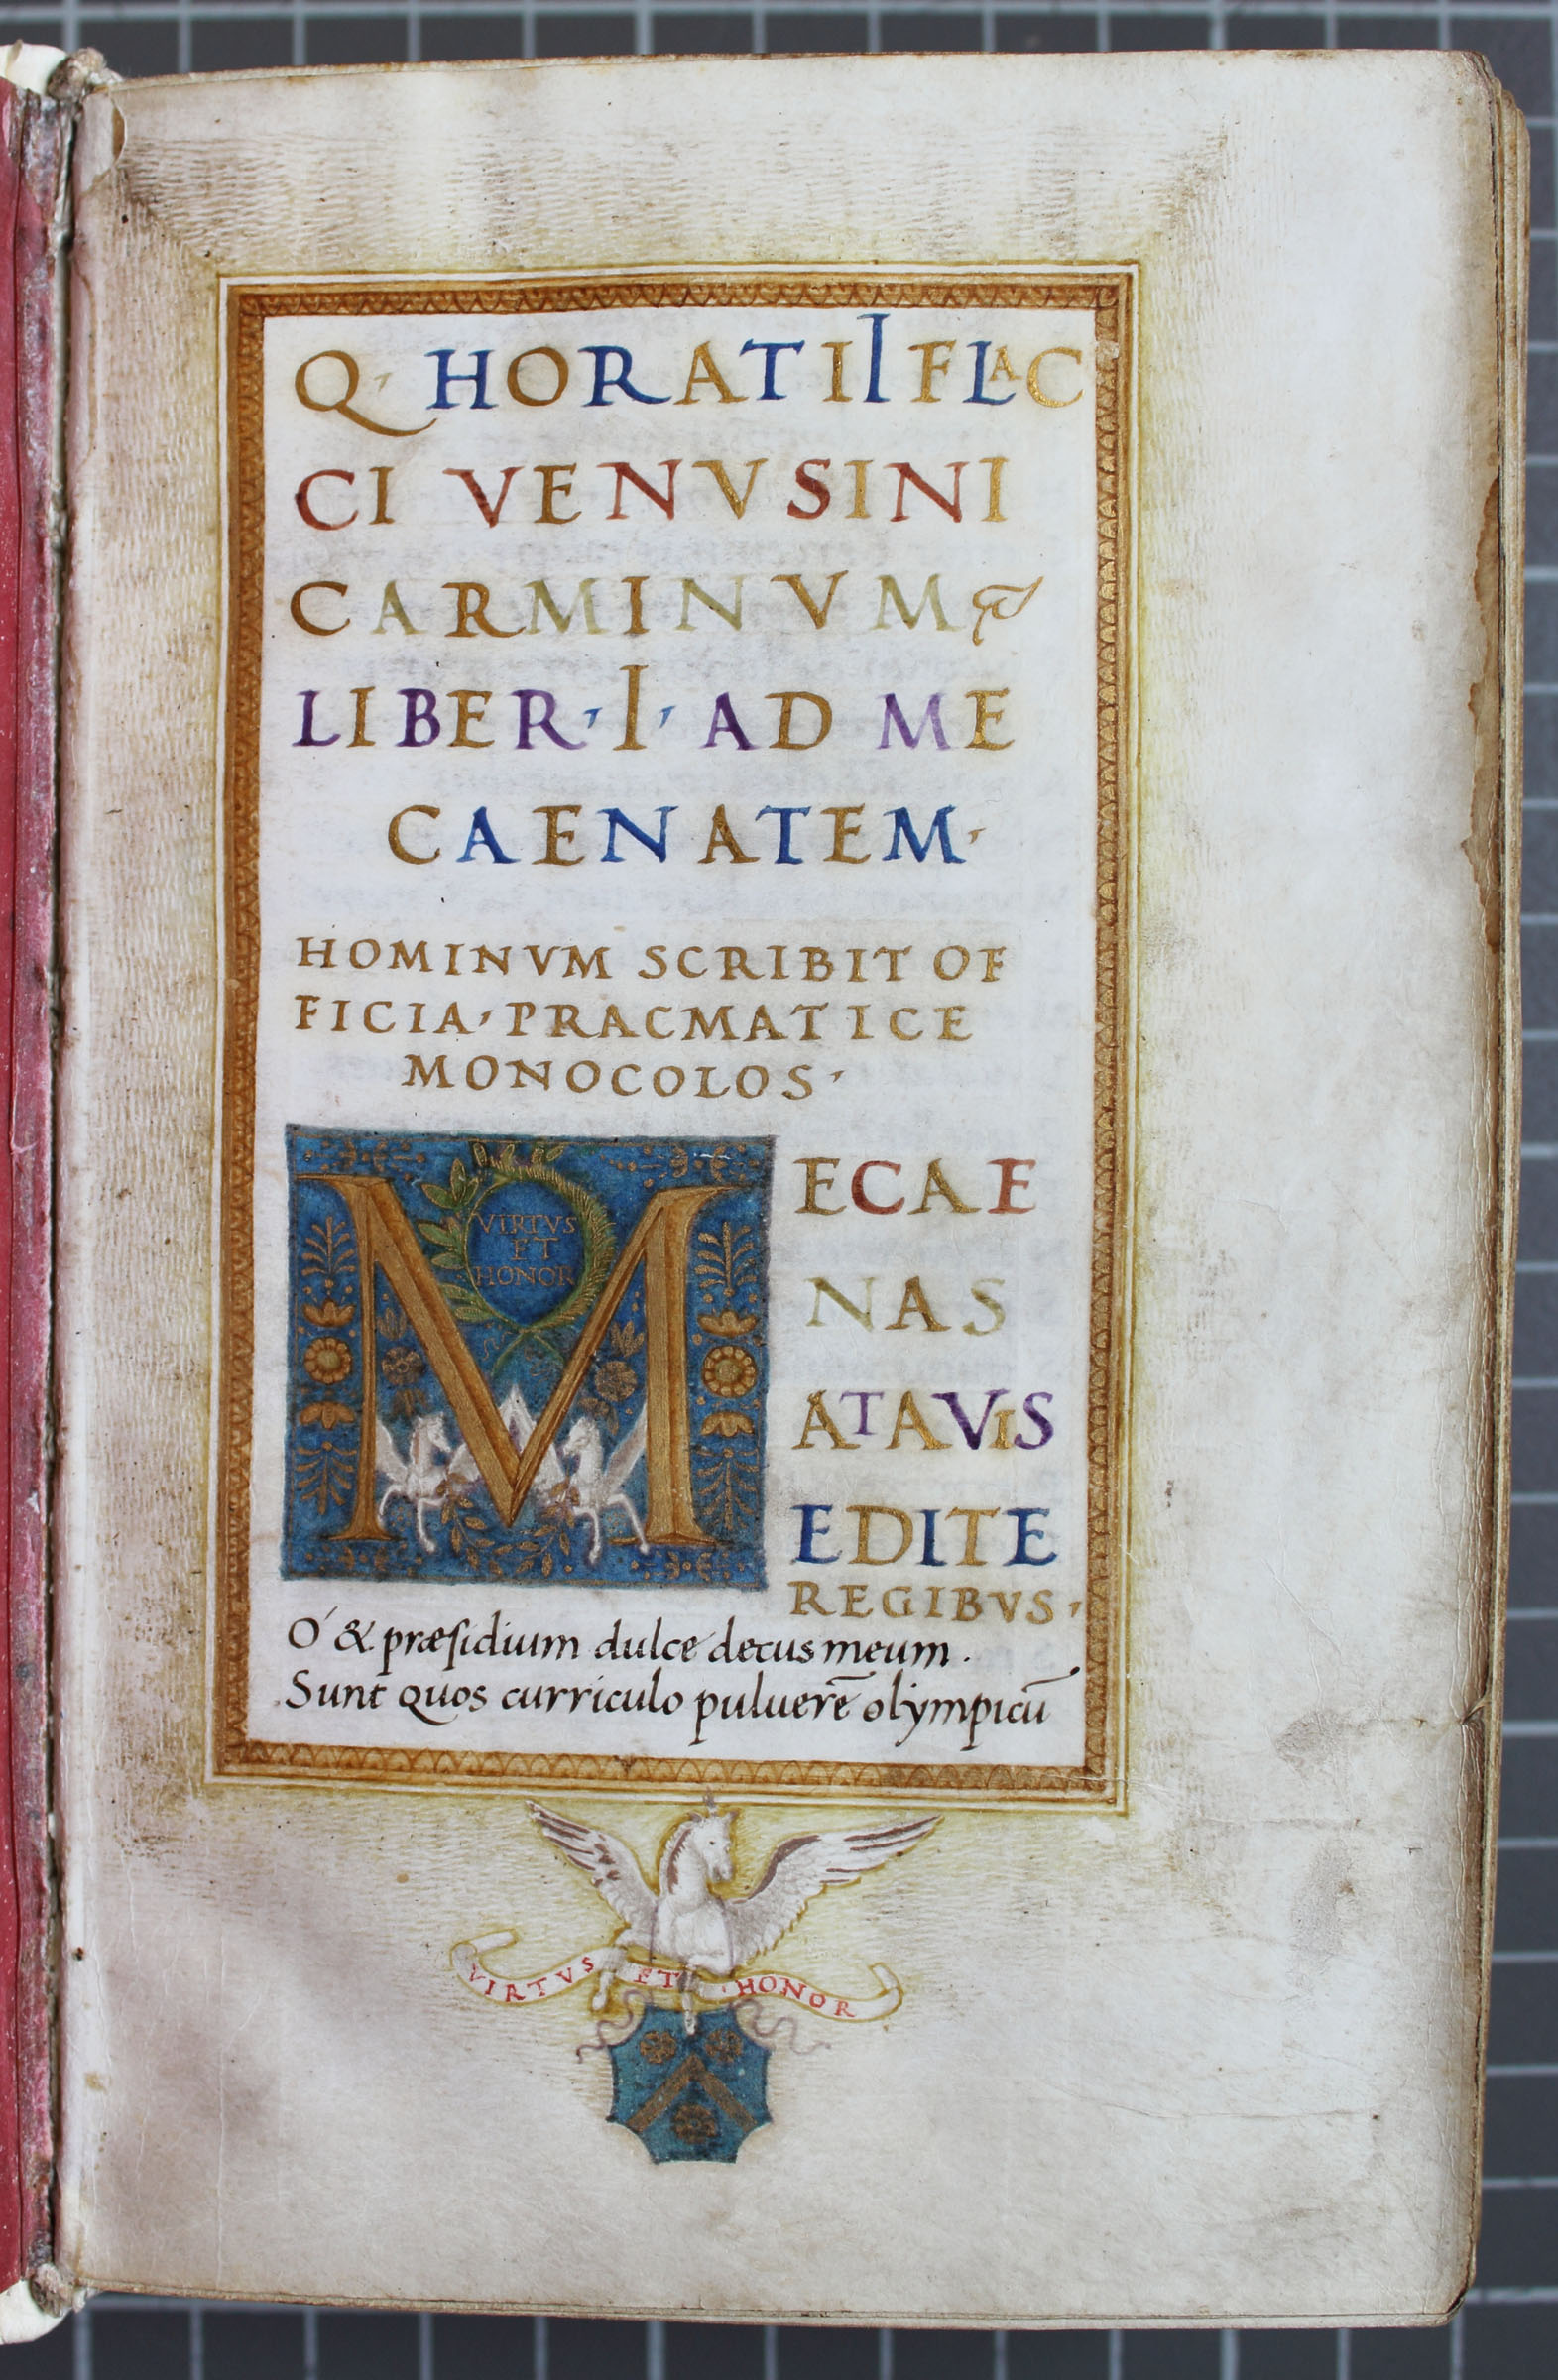 Q· HORATII FLAC
CI VENVSINI
CARMINVM
LIBER·I·AD ME
CAENATEM·
HOMINVM SCRIBIT OF
FICIA·PRACMATICE
MONOCOLOS·
VIRTVS
ET
HONOR
M
ECAE
NAS
ATAVIS
EDITE
REGIBVS·
O´ & præſidium dulce decus meum.
Sunt quos curriculo puluerē olympicū
VIRTVS ET HONOR